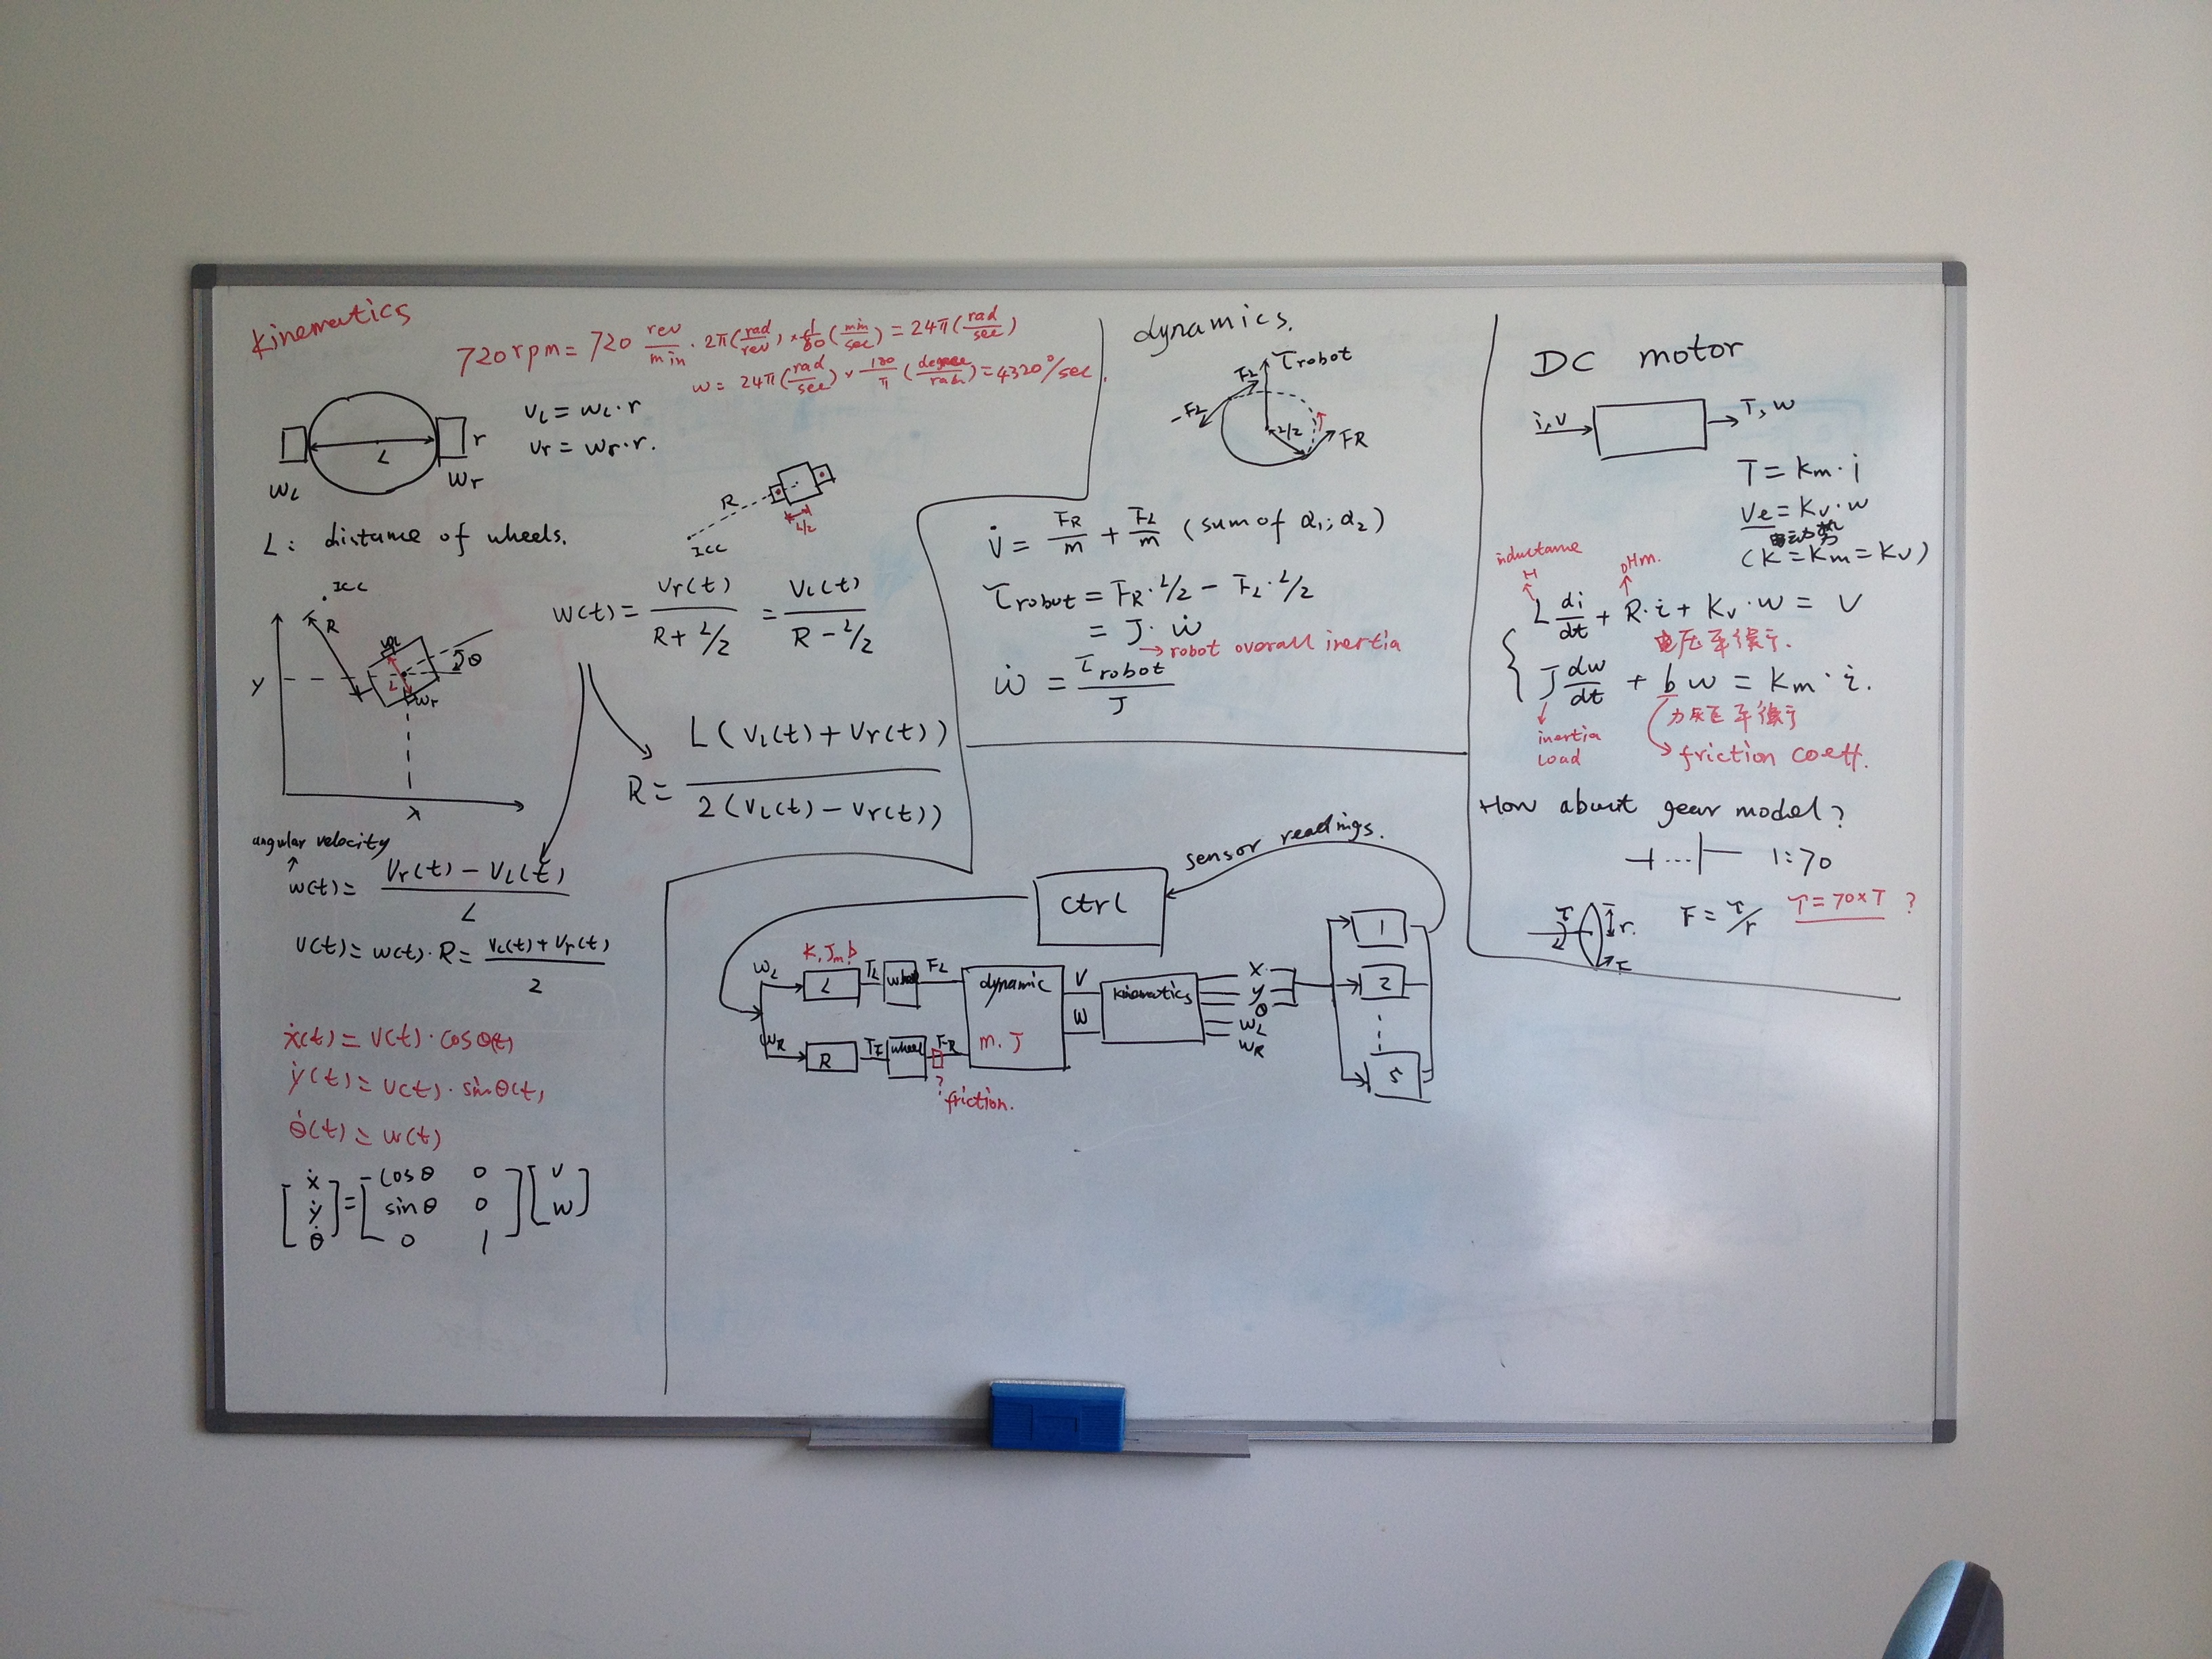 kinematics
720rpm = 720 rev/min · 2π(rad/rev) × 1/60 (min/sec) = 24π(rad/sec)
w = 24π(rad/sec) × 180/π (degree/rad) = 4320°/sec.
VL = WL·r
Vr = Wr·r.
L
r
WL
Wr
L: distance of wheels.
R
L/2
ICC
ICC
R
VL
θ
L
Wr
Y
X
W(t) = Vr(t)/(R + L/2) = VL(t)/(R - L/2)
R = L(VL(t) + Vr(t)) / 2(VL(t) - Vr(t))
angular velocity
w(t) = (Vr(t) - VL(t))/L
V(t) = w(t)·R = (VL(t) + Vr(t))/2
ẋ(t) = V(t)·cosθ(t)
ẏ(t) = V(t)·sinθ(t)
θ̇(t) = w(t)
[ẋ ẏ θ̇] = [cosθ 0 sinθ 0 0 1] [V W]
dynamics.
τrobot
FL
-FL
L/2
FR
V̇ = FR/m + FL/m (sum of α1; α2)
τrobot = FR·L/2 - FL·L/2
= J·ẇ
→ robot overall inertia
ẇ = τrobot/J
DC motor
i,v
T, w
T = Km·i
Ve = Kv·w
电动势
(K = Km = Kv)
inductance
H
oHm.
L di/dt + R·i + Kv·w = V
电压平衡式.
J dw/dt + b w = Km·i.
力矩平衡式
inertia
Load
friction coeff.
How about gear model?
1:70
τ
r.
F
F = τ/r
T = 70×T ?
sensor readings.
ctrl
K, Jm, b
WL
L
TL
wheel
FL
WR
R
wheel
FR
?
friction.
dynamic
m. J
V
W
kinematics
x.
y
θ
WL
WR
1
2
5